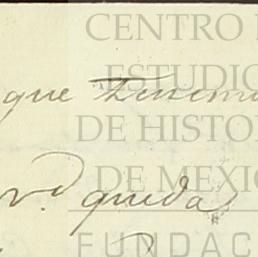 CENTRO
ESTUDIO
que tenem
DE HISTO
DE MEXI
v.d queda
FUNDAC